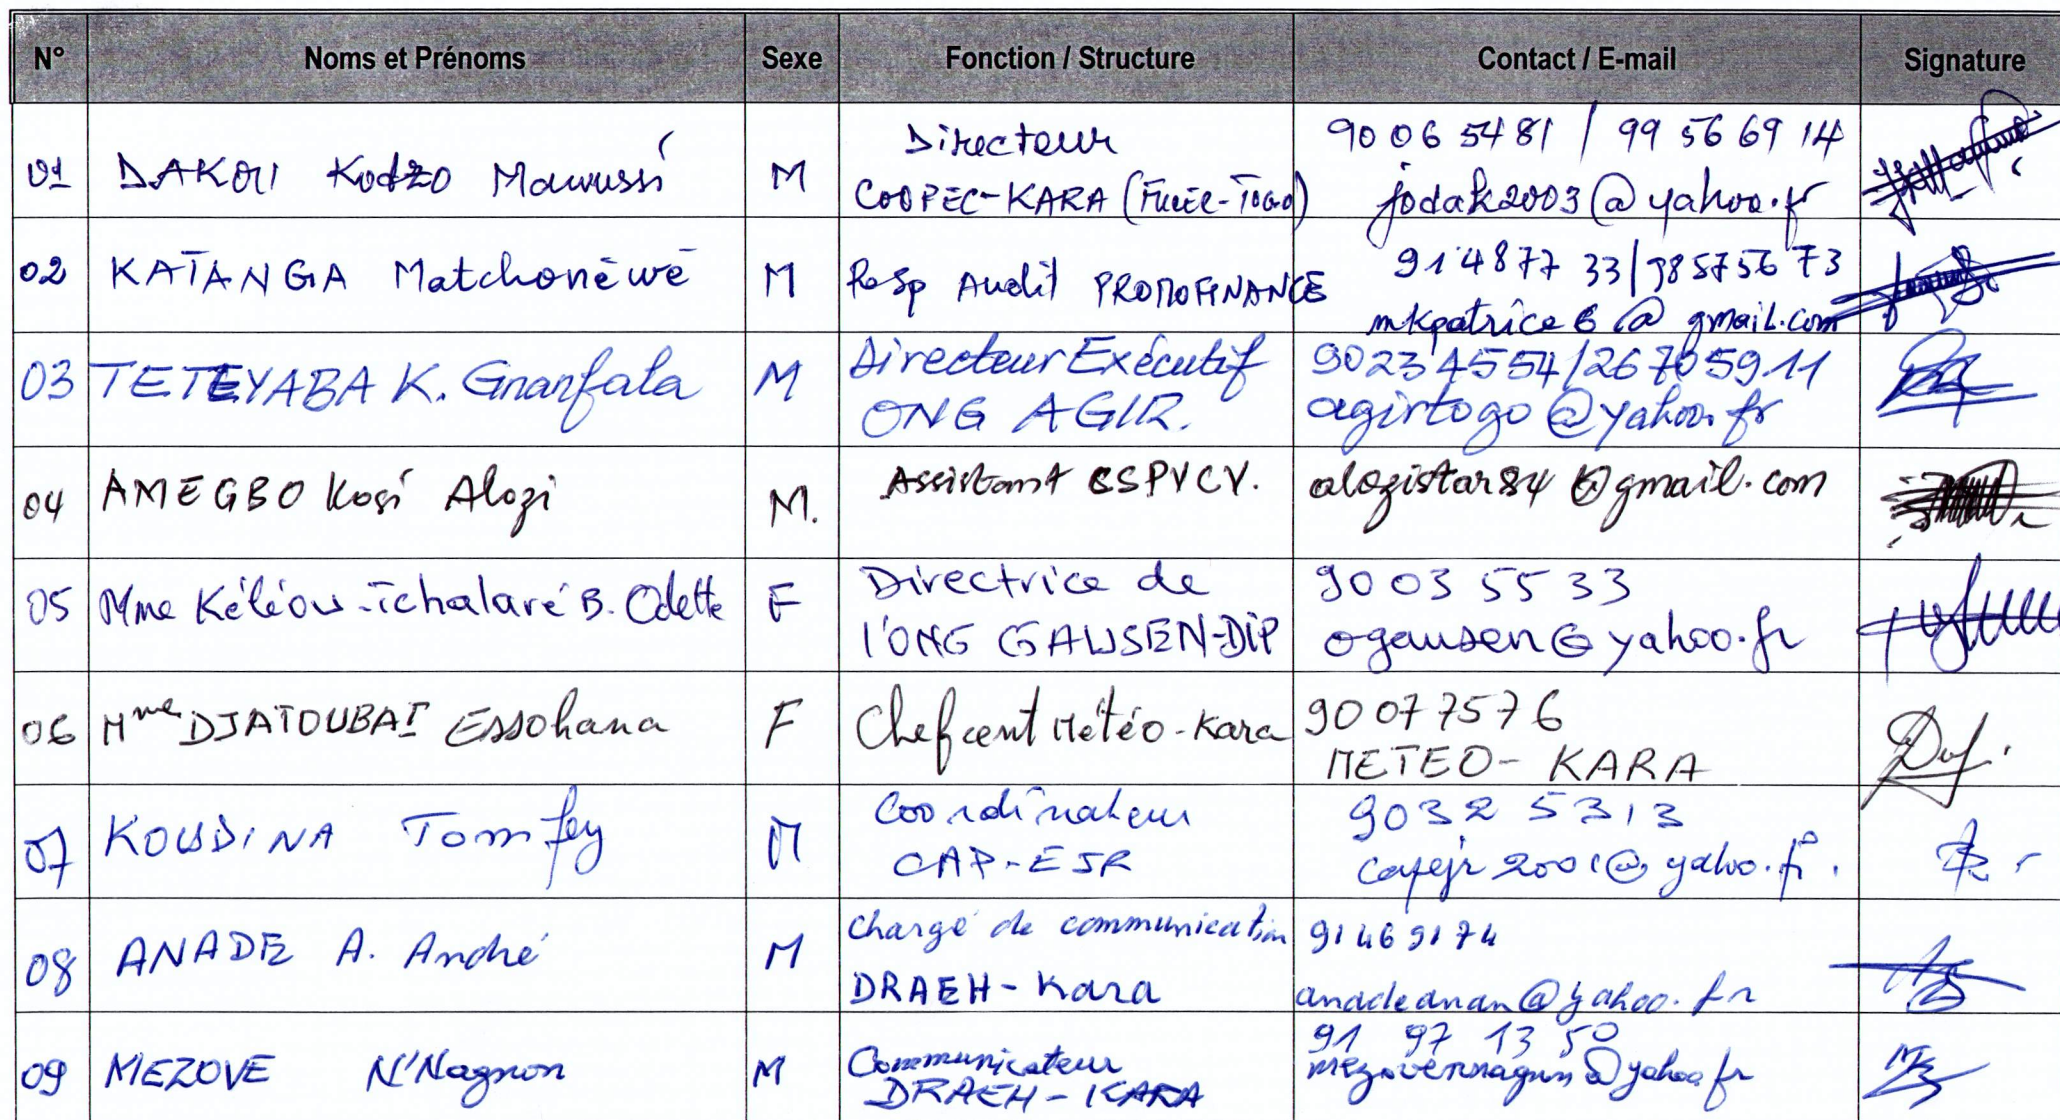 N° Noms et Prénoms Sexe Fonction / Structure Contact / E-mail Signature
01 DAKOU Kodzo Mawussi M Directeur 90 06 54 81 / 99 56 69 14
COOPEC-KARA (FUCEC-TOGO) jodak2003@yahoo.fr
02 KATANGA Matchonéwé M Resp Audit PROMOFINANCE 91 48 77 33/98575673
mkpatrice6@gmail.com
03 TETEYABA K. Gnanfala M Directeur Exécutif 90234554/26705911
ONG AGIR. agirtogo@yahoo.fr
04 AMEGBO Kosi Alozi M. Assistant CSPVCV. alozistar84@gmail.com
05 Mme Kéléou-Tchalaré B. Odette F Directrice de 90 03 55 33
l'ONG GAUSEN-DIP ogausen@yahoo.fr
06 Mme DJATOUBAI Essohana F Chef cent Météo-Kara 90077576
METEO-KARA
07 KOUDINA Tomfey M Coordinateur 9032 5313
CAP-EJR capejr2001@yahoo.fr.
08 ANADE A. André M chargé de communication 91469174
DRAEH-Kara anadeanan@yahoo.fr
09 MEZOVE N'Nagnon M Communicateur 91 97 13 50
DRAEH-KARA